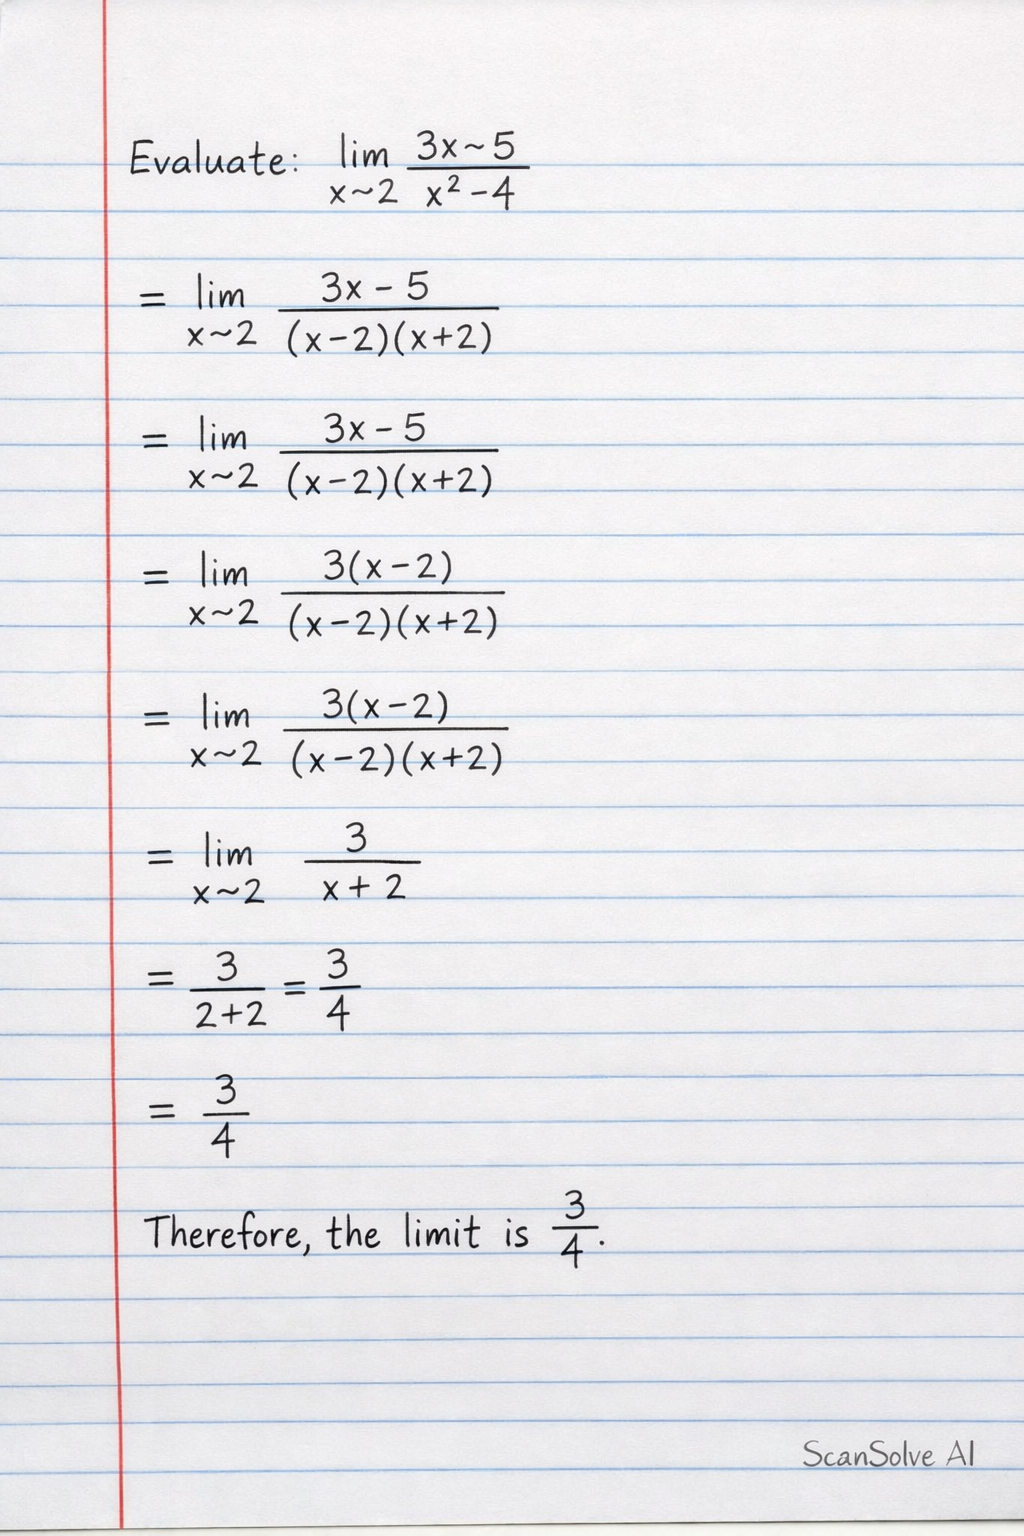 Evaluate: lim x~2 (3x~5)/(x² -4)
= lim x~2 (3x - 5)/((x-2)(x+2))
= lim x~2 (3x - 5)/((x-2)(x+2))
= lim x~2 (3(x-2))/((x-2)(x+2))
= lim x~2 (3(x-2))/((x-2)(x+2))
= lim x~2 3/(x+ 2)
= 3/(2+2) = 3/4
= 3/4
Therefore, the limit is 3/4.
ScanSolve AI